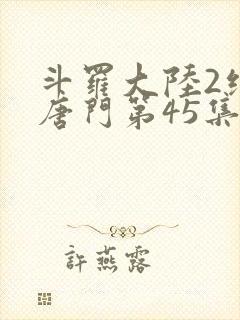 斗羅大陸2
唐門第45集
許燕露